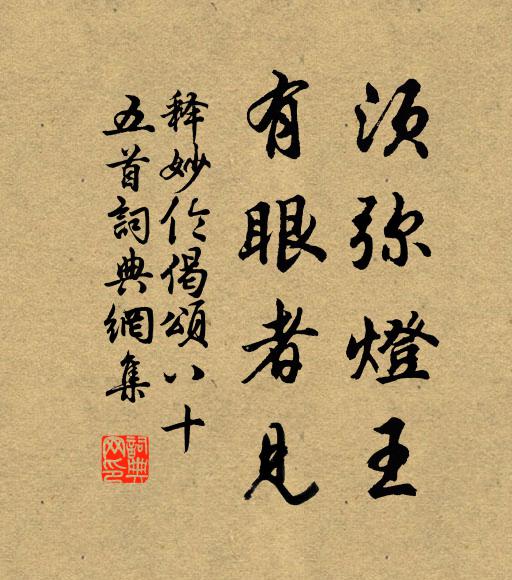 须弥燈王
有眼者見
释妙伦偈頌八十
五首詞典網集
詞典网印